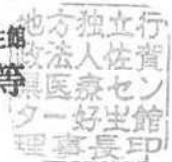 館
等
地方独立行
政法人佐賀
県医療セン
ター好生館
理事長印